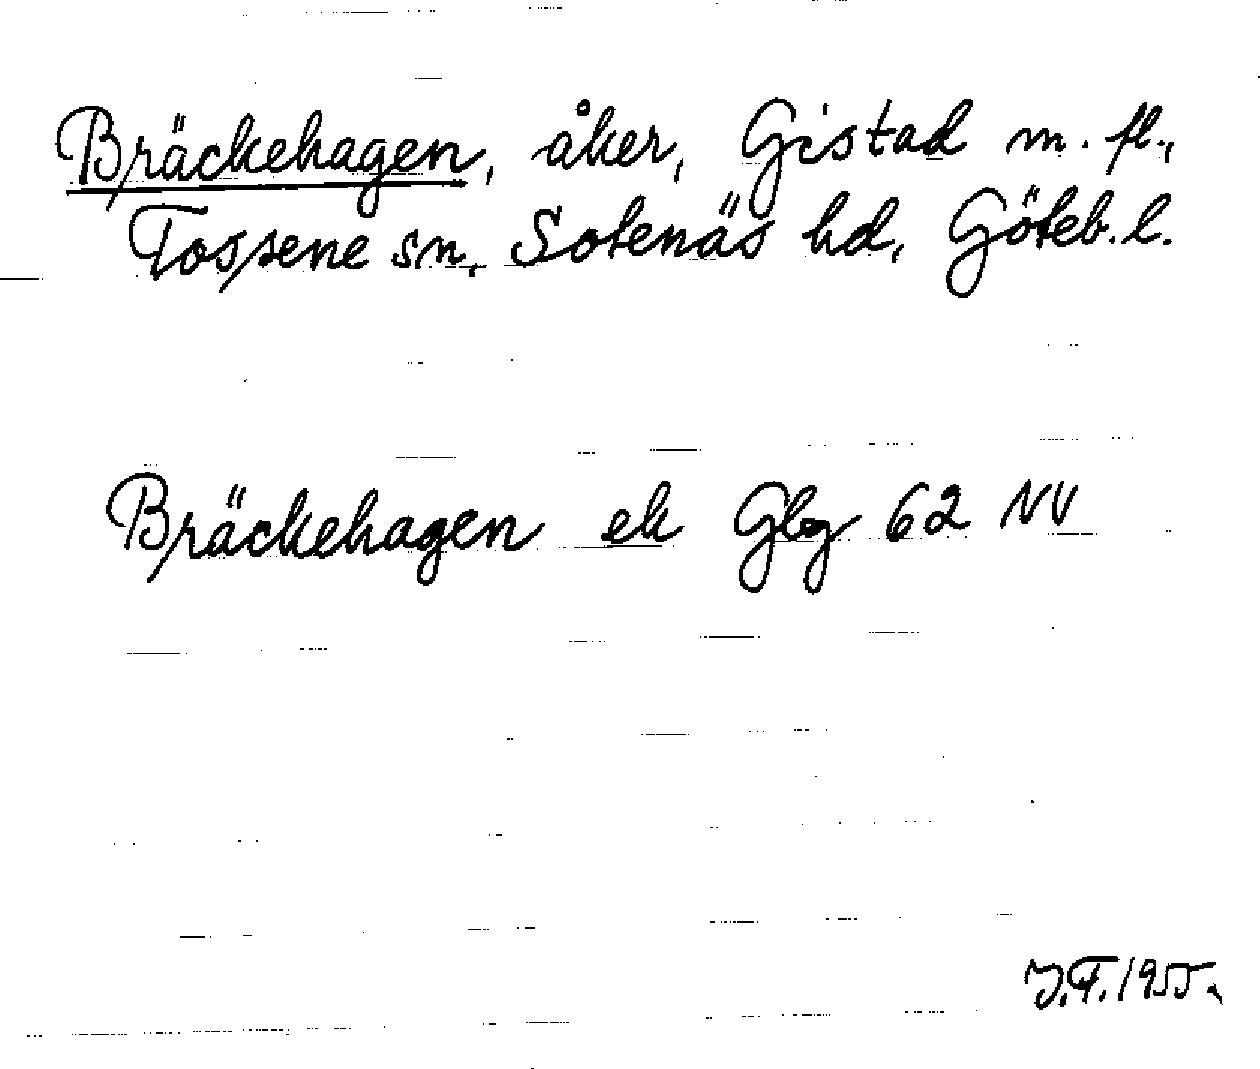 Bräckehagen, åker, Gistad m. fl.,
Tossene sn, Sotenäs hd, Göteb. l.
Bräckehagen ek Gbg 62 NV
J.F. 1955.